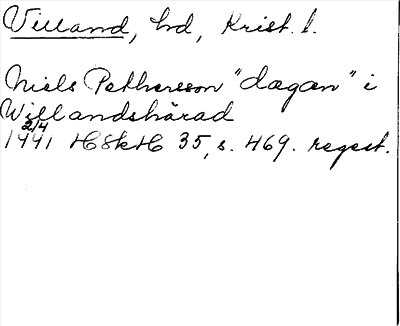 Villand, hd, Krist. l.
Niels Pethersson "dagan" i
Willandshärad
2/4
1441 HSkH 35, s. 469. regest.